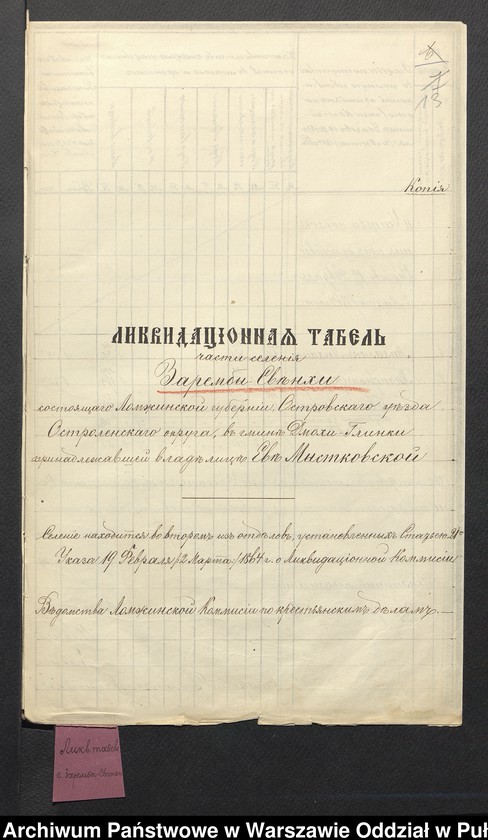 13
Копія
ЛИКВИДАЦІОННАЯ ТАБЕЛЬ
части селенія
Зарембы Свѣнхи
состоящаго Ломжинской губерніи, Островскаго уѣзда
Остроленскаго округа, въ гминѣ Дмохи-Глинки
принадлежавшей владѣлицѣ Евѣ Мыстковской
Селеніе находится во второмъ изъ отдѣловъ, установленныхъ Статьею 21й
Указа 19 Февраля /2 Марта/ 1864 г. о Ликвидаціонной Коммисіи
Вѣдомства Ломжинской Коммисіи по крестьянскимъ дѣламъ.
Ликв. табель
с. Зарембы-Свѣнхи
Archiwum Państwowe w Warszawie Oddział w Puł